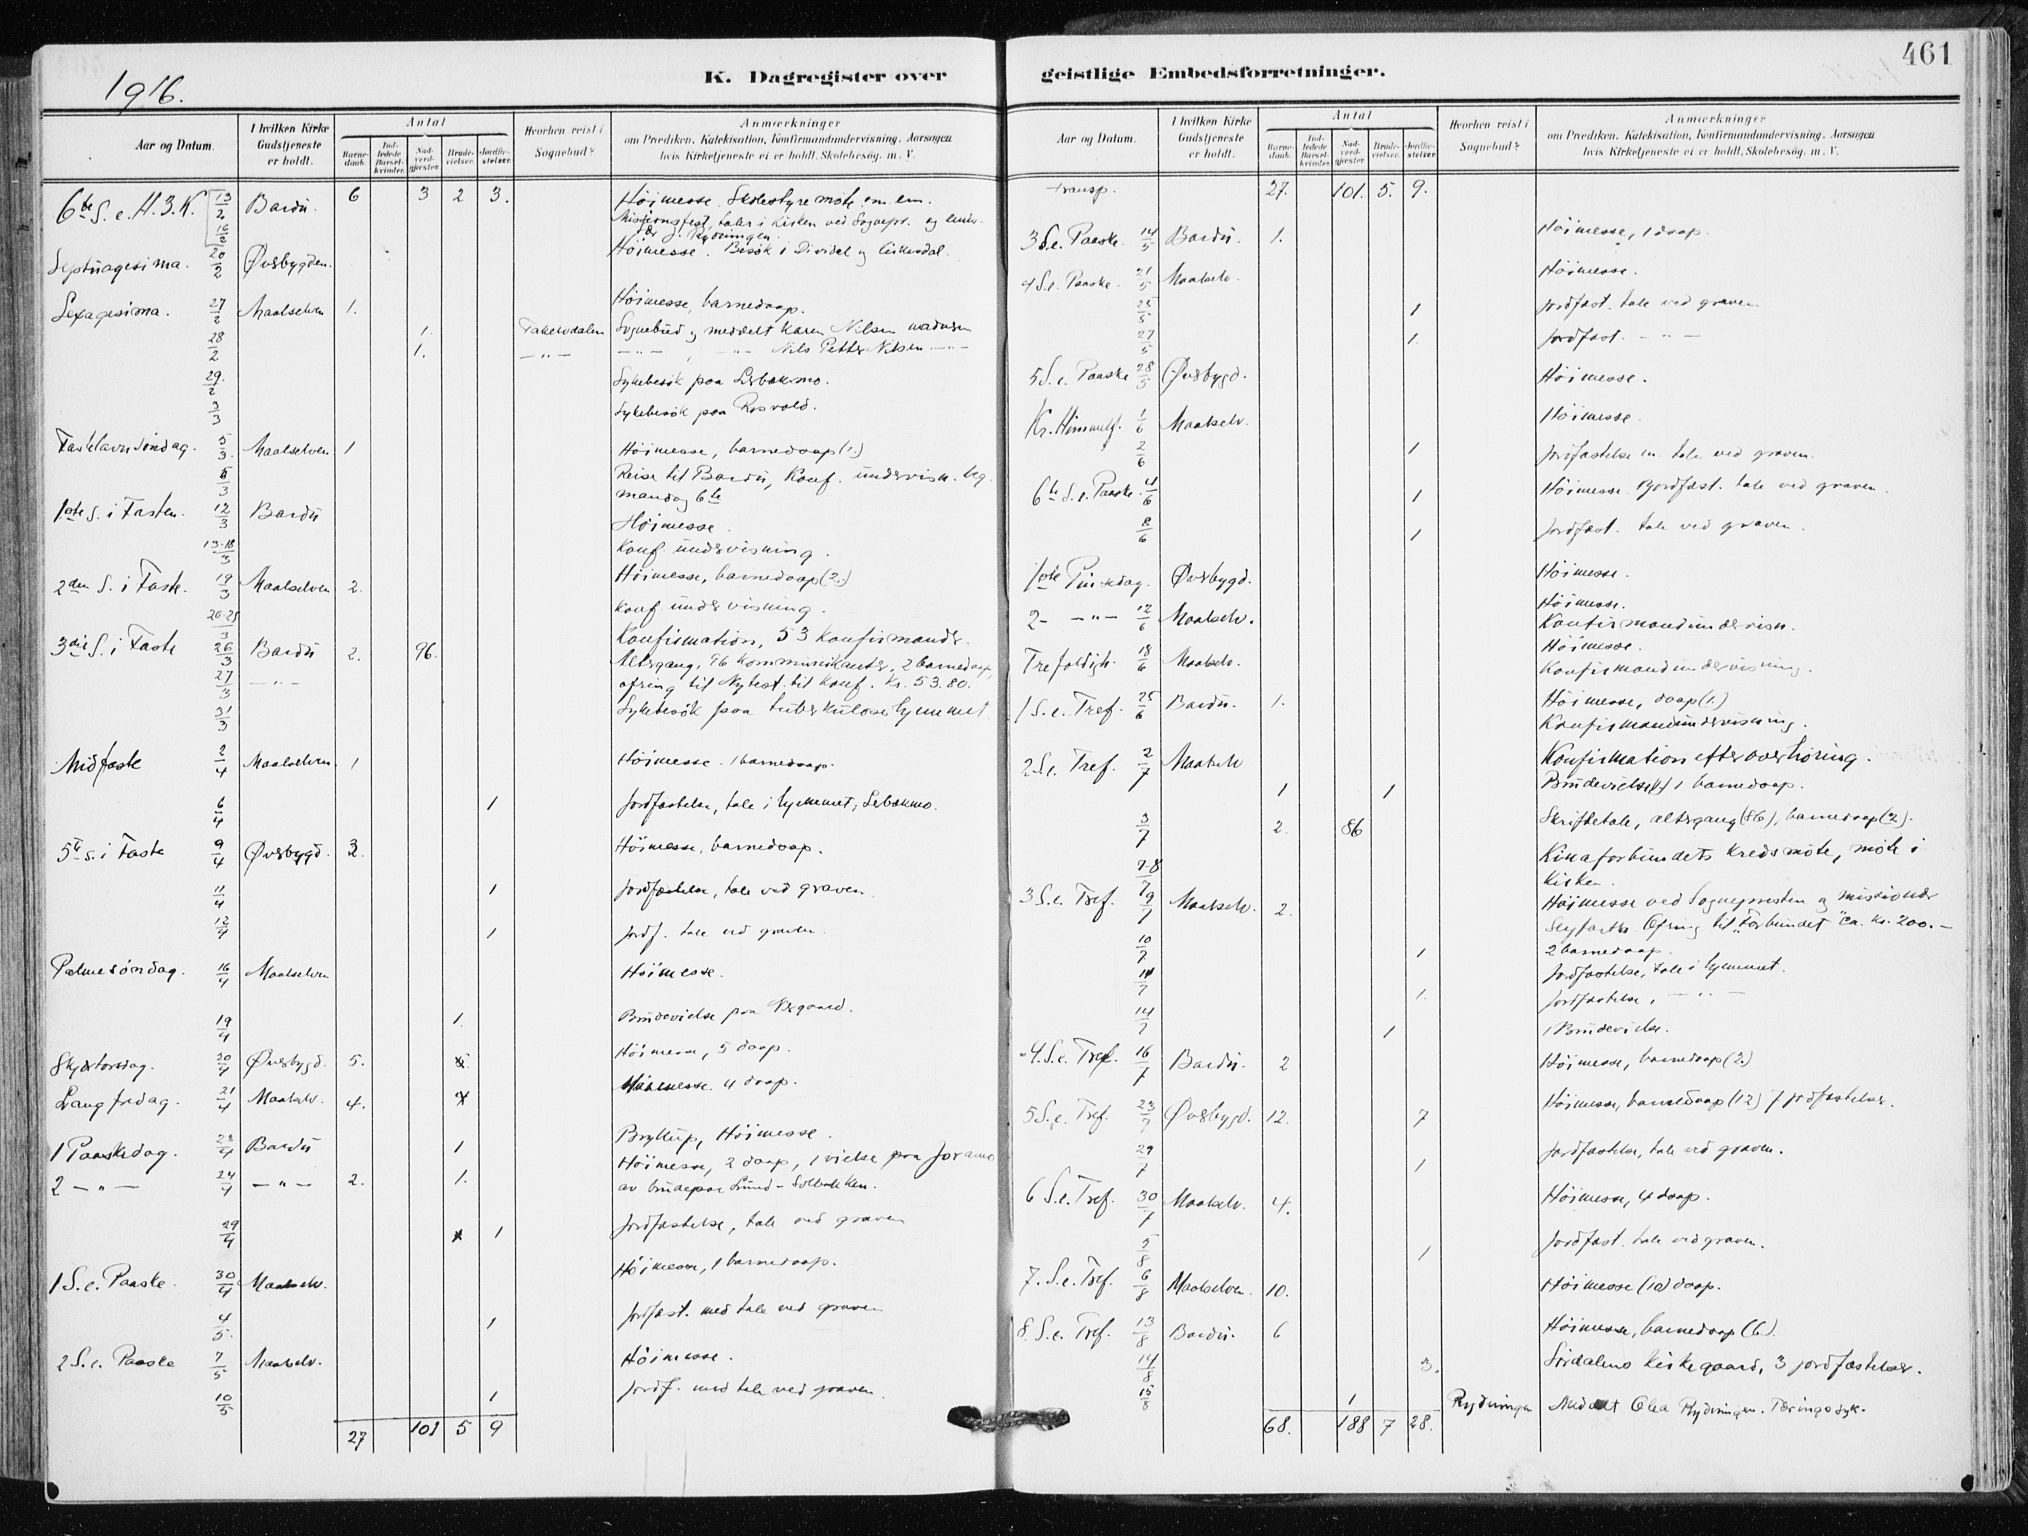 1916.
K. Dagregister over
Aar og Datum.
I hvilken Kirke Gudstjeneste er holdt.
Antal
Barne-daab.
Ind-ledede Barsel-kvinder.
Nad-verd-gjester.
Brude-vielser.
Jordfæ-stelser.
Hvorhen reist i Sognebud?
Anmærkninger
om Prædiken, Katekisation, Konfirmandundervisning, Aarsagen
hvis Kirketjeneste ei er holdt, Skolebesøg. m. V.
6te S. e. H. 3. K. 13/2 Bardu. 6 3 2 3. Höimesse. Skolestyremöte em. em.
16/2 Missionsfest, taler i Kirken ved Sognepr. og
J. Rydningen.
Septuagesima. 20/2 Øvrbygden. Höimesse. Besök i Dividal og Kirkesdal.
Sexagesima. 27/2 Maalselven 1. Höimesse, barnedaap.
28/2 1. Takelvdalen Sognebud og meddelt Karen Nilsen nadveren
1. —"— —"— —"— Nils Petter Nilsen —"—
29./2 Sykebesök paa
3/3 Sykebesök paa Rosvold.
Fastelavnsöndag. 5/3. Maalselven 1 Höimesse, barnedaap (1.)
6/3 Reise til Bardu, Konf. undervisn. beg.
mandag 6te
1ste S. i Fasten. 12/3 Bardu Höimesse.
13-18/3 Konf. undervisning.
2den S. i Faste. 19/3 Maalselven 2. Höimesse, barnedaap (2.)
20-25/3 Konf. undervisning.
3die S. i Faste 26/3 Bardu 2. 96. Konfirmation, 53 konfirmander.
27/3 —"— Altergang, 96 kommunikanter, 2 barnedaap,
ofring til Nytest. til Konf. Kr. 53.80.
31/3 Sykebesök paa tuberkulosehjemmet
Midfaste 2/4 Maalselven 1 Höimesse. 1 barnedaap.
6/4 1 Jordfæstelse, tale i hjemmet,
5te S. i Faste 9/4 Øvrbygd. 3. Höimesse, barnedaap.
11/4 1 Jordfæstelse, tale ved graven.
12/4 1 Jordf. tale ved graven.
Palmesöndag. 16/4 Maalselven Höimesse.
19/4 1. Brudevielse paa
Skjærtorsdag. 20/4 Øvrbygd. 5. Höimesse, 5 daap.
Langfredag. 21/4 Maalselv. 4. Höimesse. 4 daap.
1 Paaskedag. 23/4 Bardu 1 Bryllup, Höimesse.
2 —"— 24/4 —"— 2. 1. Höimesse, 2 daap, 1 vielse paa
av brudepar Lund - Solbakken.
29/4 1 Jordfæstelse, tale ved graven
1 S. e. Paaske. 30/4 Maalselv. Höimesse, 1 barnedaap.
4/5. 1 Jordfæst. med tale ved graven
2 S. e. Paaske 7/5 Maalselv. Höimesse.
10/5 1 Jordf. med tale ved graven.
27 101 5 9
461
geistlige Embedsforretninger.
Aar og Datum.
I hvilken Kirke Gudstjeneste er holdt.
Antal
Barne-daab.
Ind-ledede Barsel-kvinder.
Nad-verd-gjester.
Brude-vielser.
Jordfæ-stelser.
Hvorhen reist i Sognebud?
Anmærkninger
om Prædiken, Katekisation, Konfirmandundervisning, Aarsagen
hvis Kirketjeneste ei er holdt, Skolebesøg. m. V.
Transp. 27. 101. 5. 9.
3 S. e. Paaske. 14/5 Bardu. 1. Höimesse, 1 daap.
4 S. e. Paaske. 21/5 Maalselv. Höimesse.
25/5 1 Jordfæst. tale ved graven
27/5 1. Jordfæst. —"—
5 S. e. Paaske 28/5 Øvrbygd. Höimesse.
Kr. Himmelf. 1/6 Maalselv. Höimesse.
2/6 1 Jordfæstelse m. tale ved graven.
6te S. e. Paaske. 4/6 1 Höimesse. Jordfæst. tale ved graven.
8/6 1 Jordfæst. tale ved graven.
1ste Pinsedag. Øvrbygd. Höimesse.
2- —"— 12/6 Maalselv. Höimesse.
Konfirmandundervisn.
Trefoldigh. 18/6 Maalselv. Höimesse.
Konfirmandundervisning.
1 S. e. Tref. 25/6 Bardu. 1. Höimesse, daap (1.)
Konfirmandundervisning.
2 S. e. Tref. 2/7 Maalselv Konfirmation efter overhöring.
1 1 Brudevielse (1.) 1 barnedaap.
3/7 2. 86 Skriftetale, altergang (86), barnedaap (2).
7-8/7 Kinaforbundets kredsmöte, möte i
Kirken.
3 S. e. Tref. 9/7 Maalselv. 2. Höimesse ved Sognepresten og missionær
Ofring til "Forbundet" ca. kr. 200.—
2 barnedaap.
10/7 1 Jordfæstelse, tale i hjemmet.
11/7 1. Jordfæstelse, —"—
14/7 1 1 Brudevielse.
4. S. e. Tref. 16/7 Bardu. 2 Höimesse, barnedaap (2.)
5 S. e. Tref. 23/7 Øvrbygd. 12. 7 Höimesse, barnedaap (12) 7 jordfæstelser.
29/7 1 Jordfæstelse, tale ved graven.
6 S. e. Tref. 30/7 Maalselv. 4. Höimesse, 4 daap.
5/8 1 Jordfæst. tale ved graven.
7. S. e. Tref. 6/8 Maalselven. 10. Höimesse (10) daap.
8. S. e. Tref. 13/8 Bardu. 6 Höimesse, barnedaap (6.).
14/8 3. Sördalens Kirkegaard, 3 jordfæstelser.
15/8 1 Rydningen Meddelt Olea Rydningen. Tæringssyk.
68. 188 7 28.